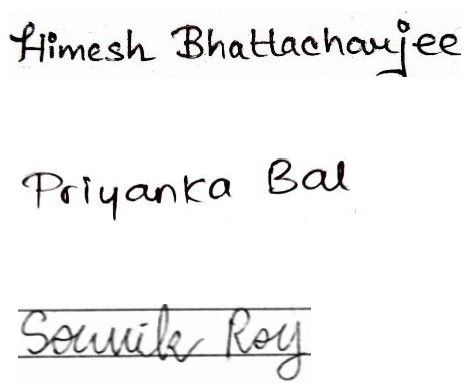 Himesh Bhattacharjee
Priyanka Bal
Souvik Roy